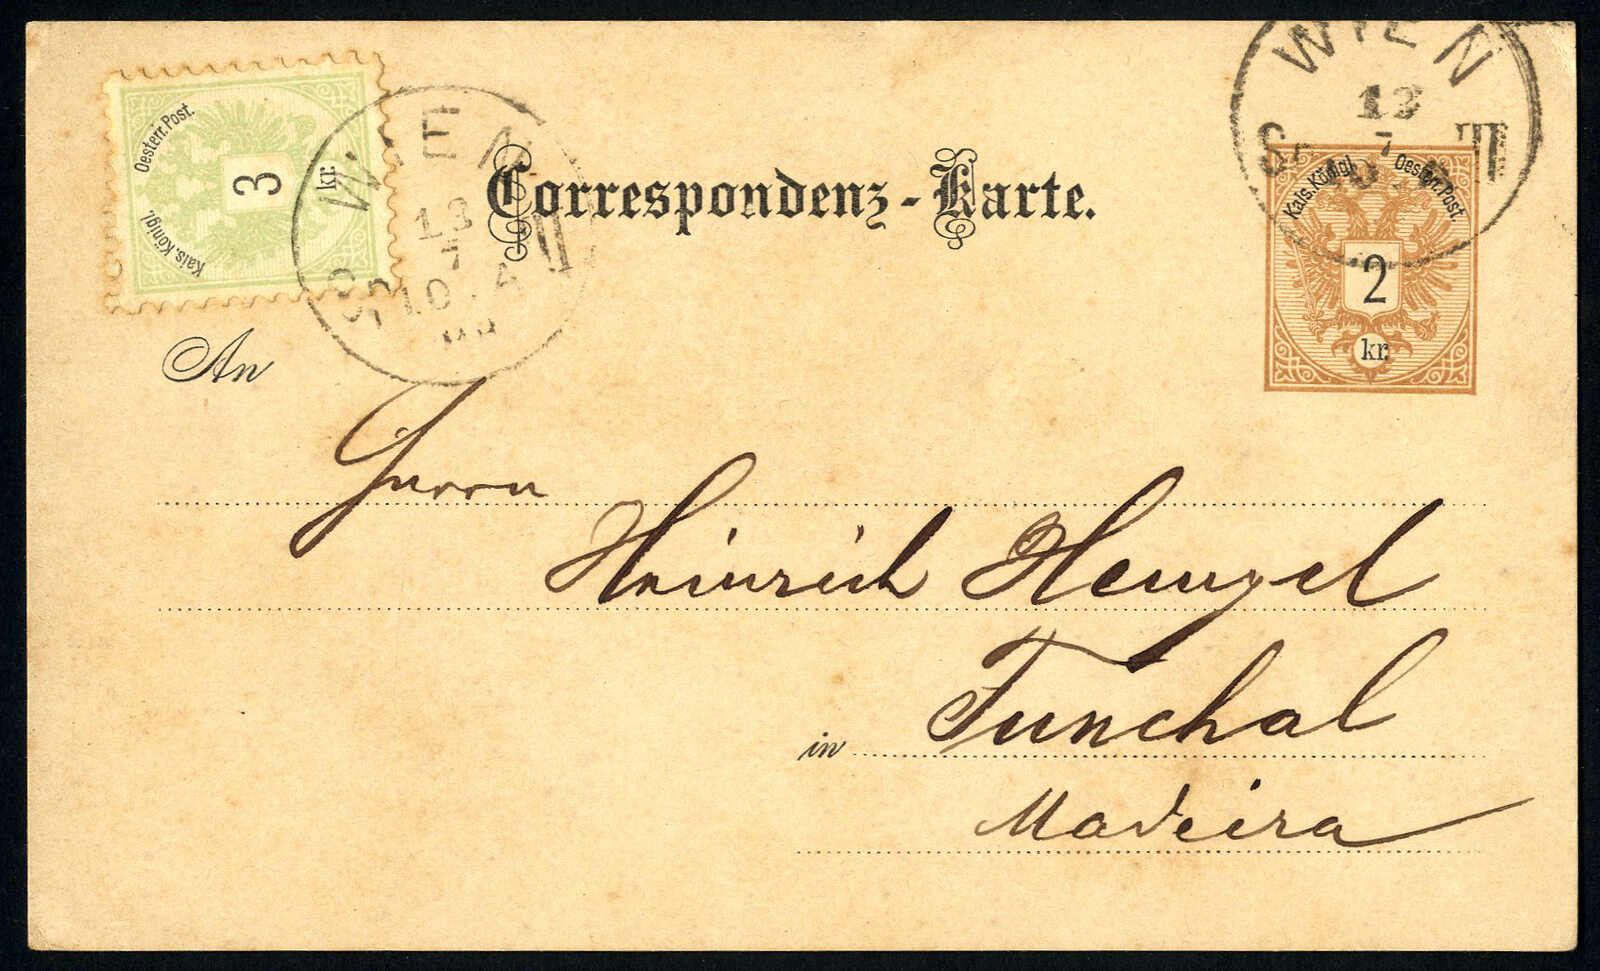 Kais. Königl. Oesterr. Post.
3
kr.
WIEN
13
7
10 . A
Correspondenz-Karte.
WIEN
13
7
III
Kais. Königl. Oesterr. Post.
2
kr.
An
Herrn
Heinrich Hempel
in Funchal
Madeira